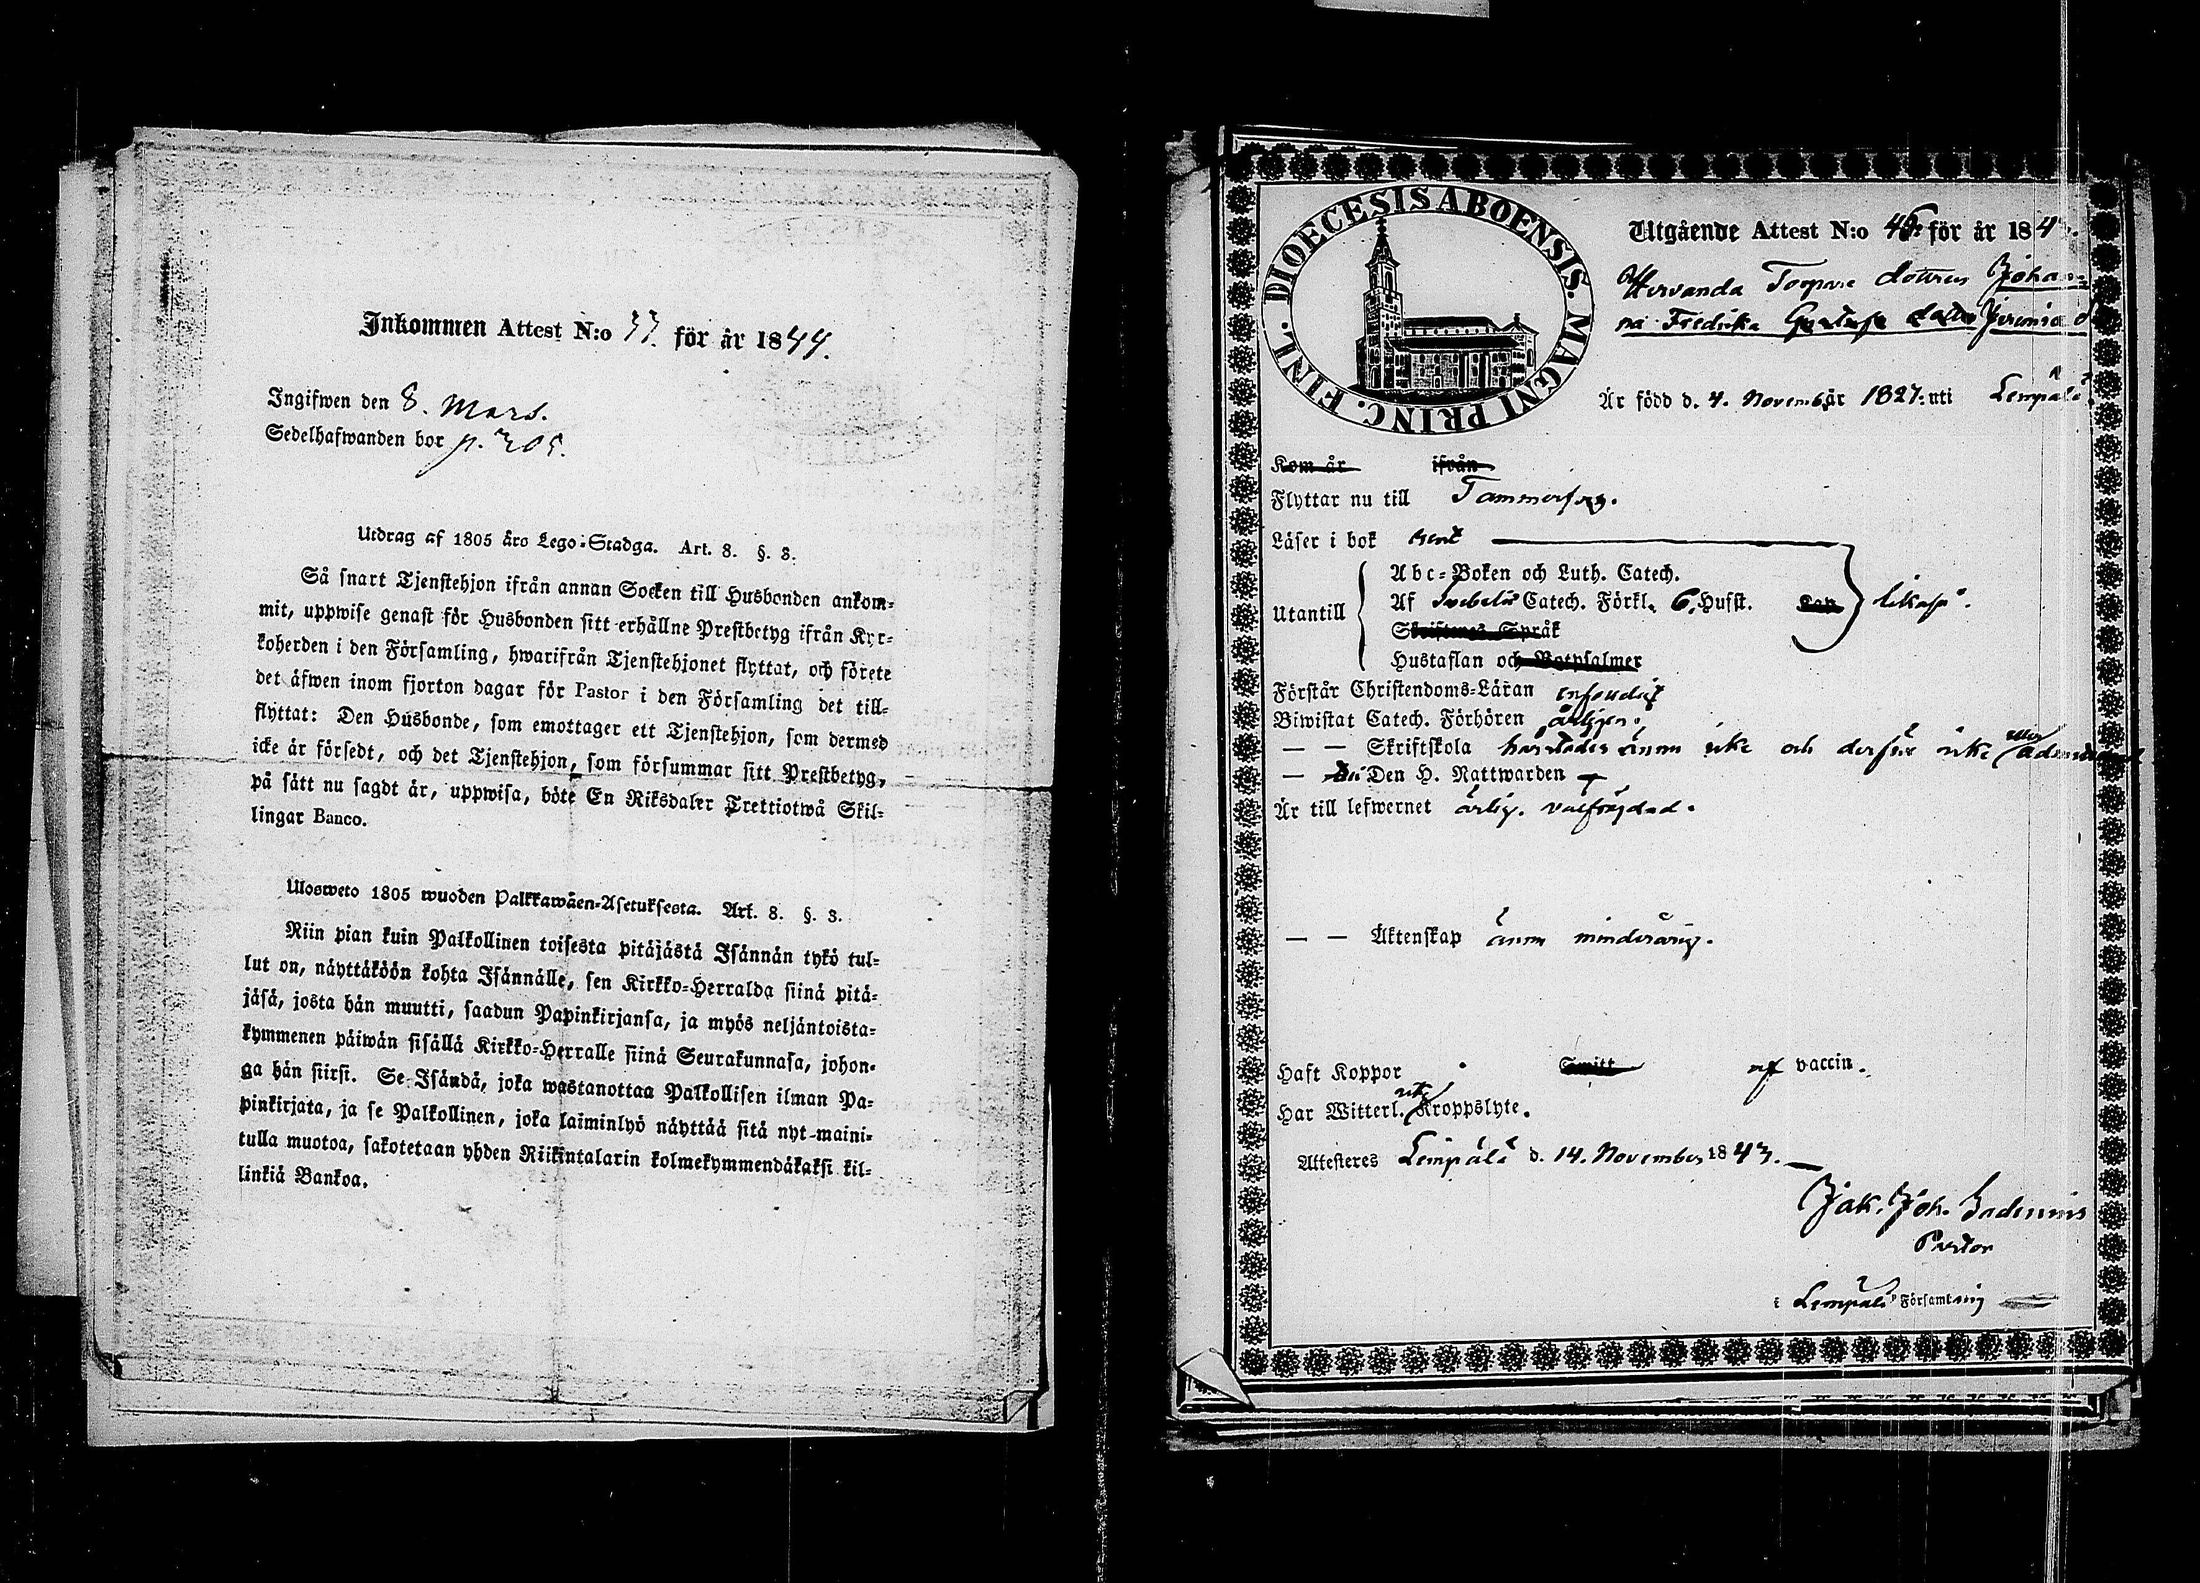 Inkommen Attest N:o 33. för år 1844.
Ingifwen den 8. Mars.
Sedelhafwanden bor p. 205.
Utdrag af 1805 års Lego-Stadga. Art. 8. §. 3.
Så snart Tjenstehjon ifrån annan Socken till Husbonden ankom-
mit, uppwise genast för Husbonden sitt erhållne Prestbetyg ifrån Kyr-
koherden i den Församling, hwarifrån Tjenstehjonet flyttat, och förete
det äfwen inom fjorton dagar för Pastor i den Församling det till-
flyttat: Den Husbonde, som emottager ett Tjenstehjon, som dermed
icke är försedt, och det Tjenstehjon, som försummar sitt Prestbetyg,
på sätt nu sagdt är, uppwisa, böte En Riksdaler Trettiotwå Skil-
lingar Banco.
Ulosweto 1805 wuoden Palkkawäen-Asetuksesta. Art. 8. §. 3.
Niin pian kuin Palkollinen toisesta pitäjästä Isännän tykö tul-
lut on, näyttäköön kohta Isännälle, sen Kirkko-Herralda siinä pitä-
jäsä, josta hän muutti, saadun Papinkirjansa, ja myös neljäntoista-
kymmenen päiwän sisällä Kirkko-Herralle siinä Seurakunnasa, johon-
ga hän siirsi. Se Isändä, joka wastanottaa Palkollisen ilman Pa-
pinkirjata, ja se Palkollinen, joka laiminlyö näyttää sitä nyt-maini-
tulla muotoa, sakotetaan yhden Riikintalarin kolmekymmendäkaksi kil-
linkiä Bankoa.
DIOECESIS ABOENSIS. MAGNI PRINC. FINL.
Utgående Attest N:o 45. för år 184
Torpare dottren Johan-
na Fredrika Gustafs dotter
Är född d. 4. Novemb. år 1827. uti Lempälä.
Kom år ifrån
Flyttar nu till Tammerfors.
Läser i bok rent
Abc-Boken och Luth. Catech.
Utantill Af Svebelii Catech. Förkl. 6, Husst. likaså.
Skriftenes Språk
Hustaflan och Botpsalmer
Förstår Christendoms-Läran enfaldigt
Biwistat Catech. Förhören årligen.
— — Skriftskola härstädes ännu icke och derföre icke eller
— Den H. Nattwarden
Är till lefwernet ärlig. välfrägdad.
— — Äktenskap ännu minderårig.
Haft Koppor Smitt af vaccin.
Har Witterl. icke Kroppslyte.
Attesteres Lempälä d. 14. November 1843.
Jak. Joh.
Pastor
i Lempälä Församling